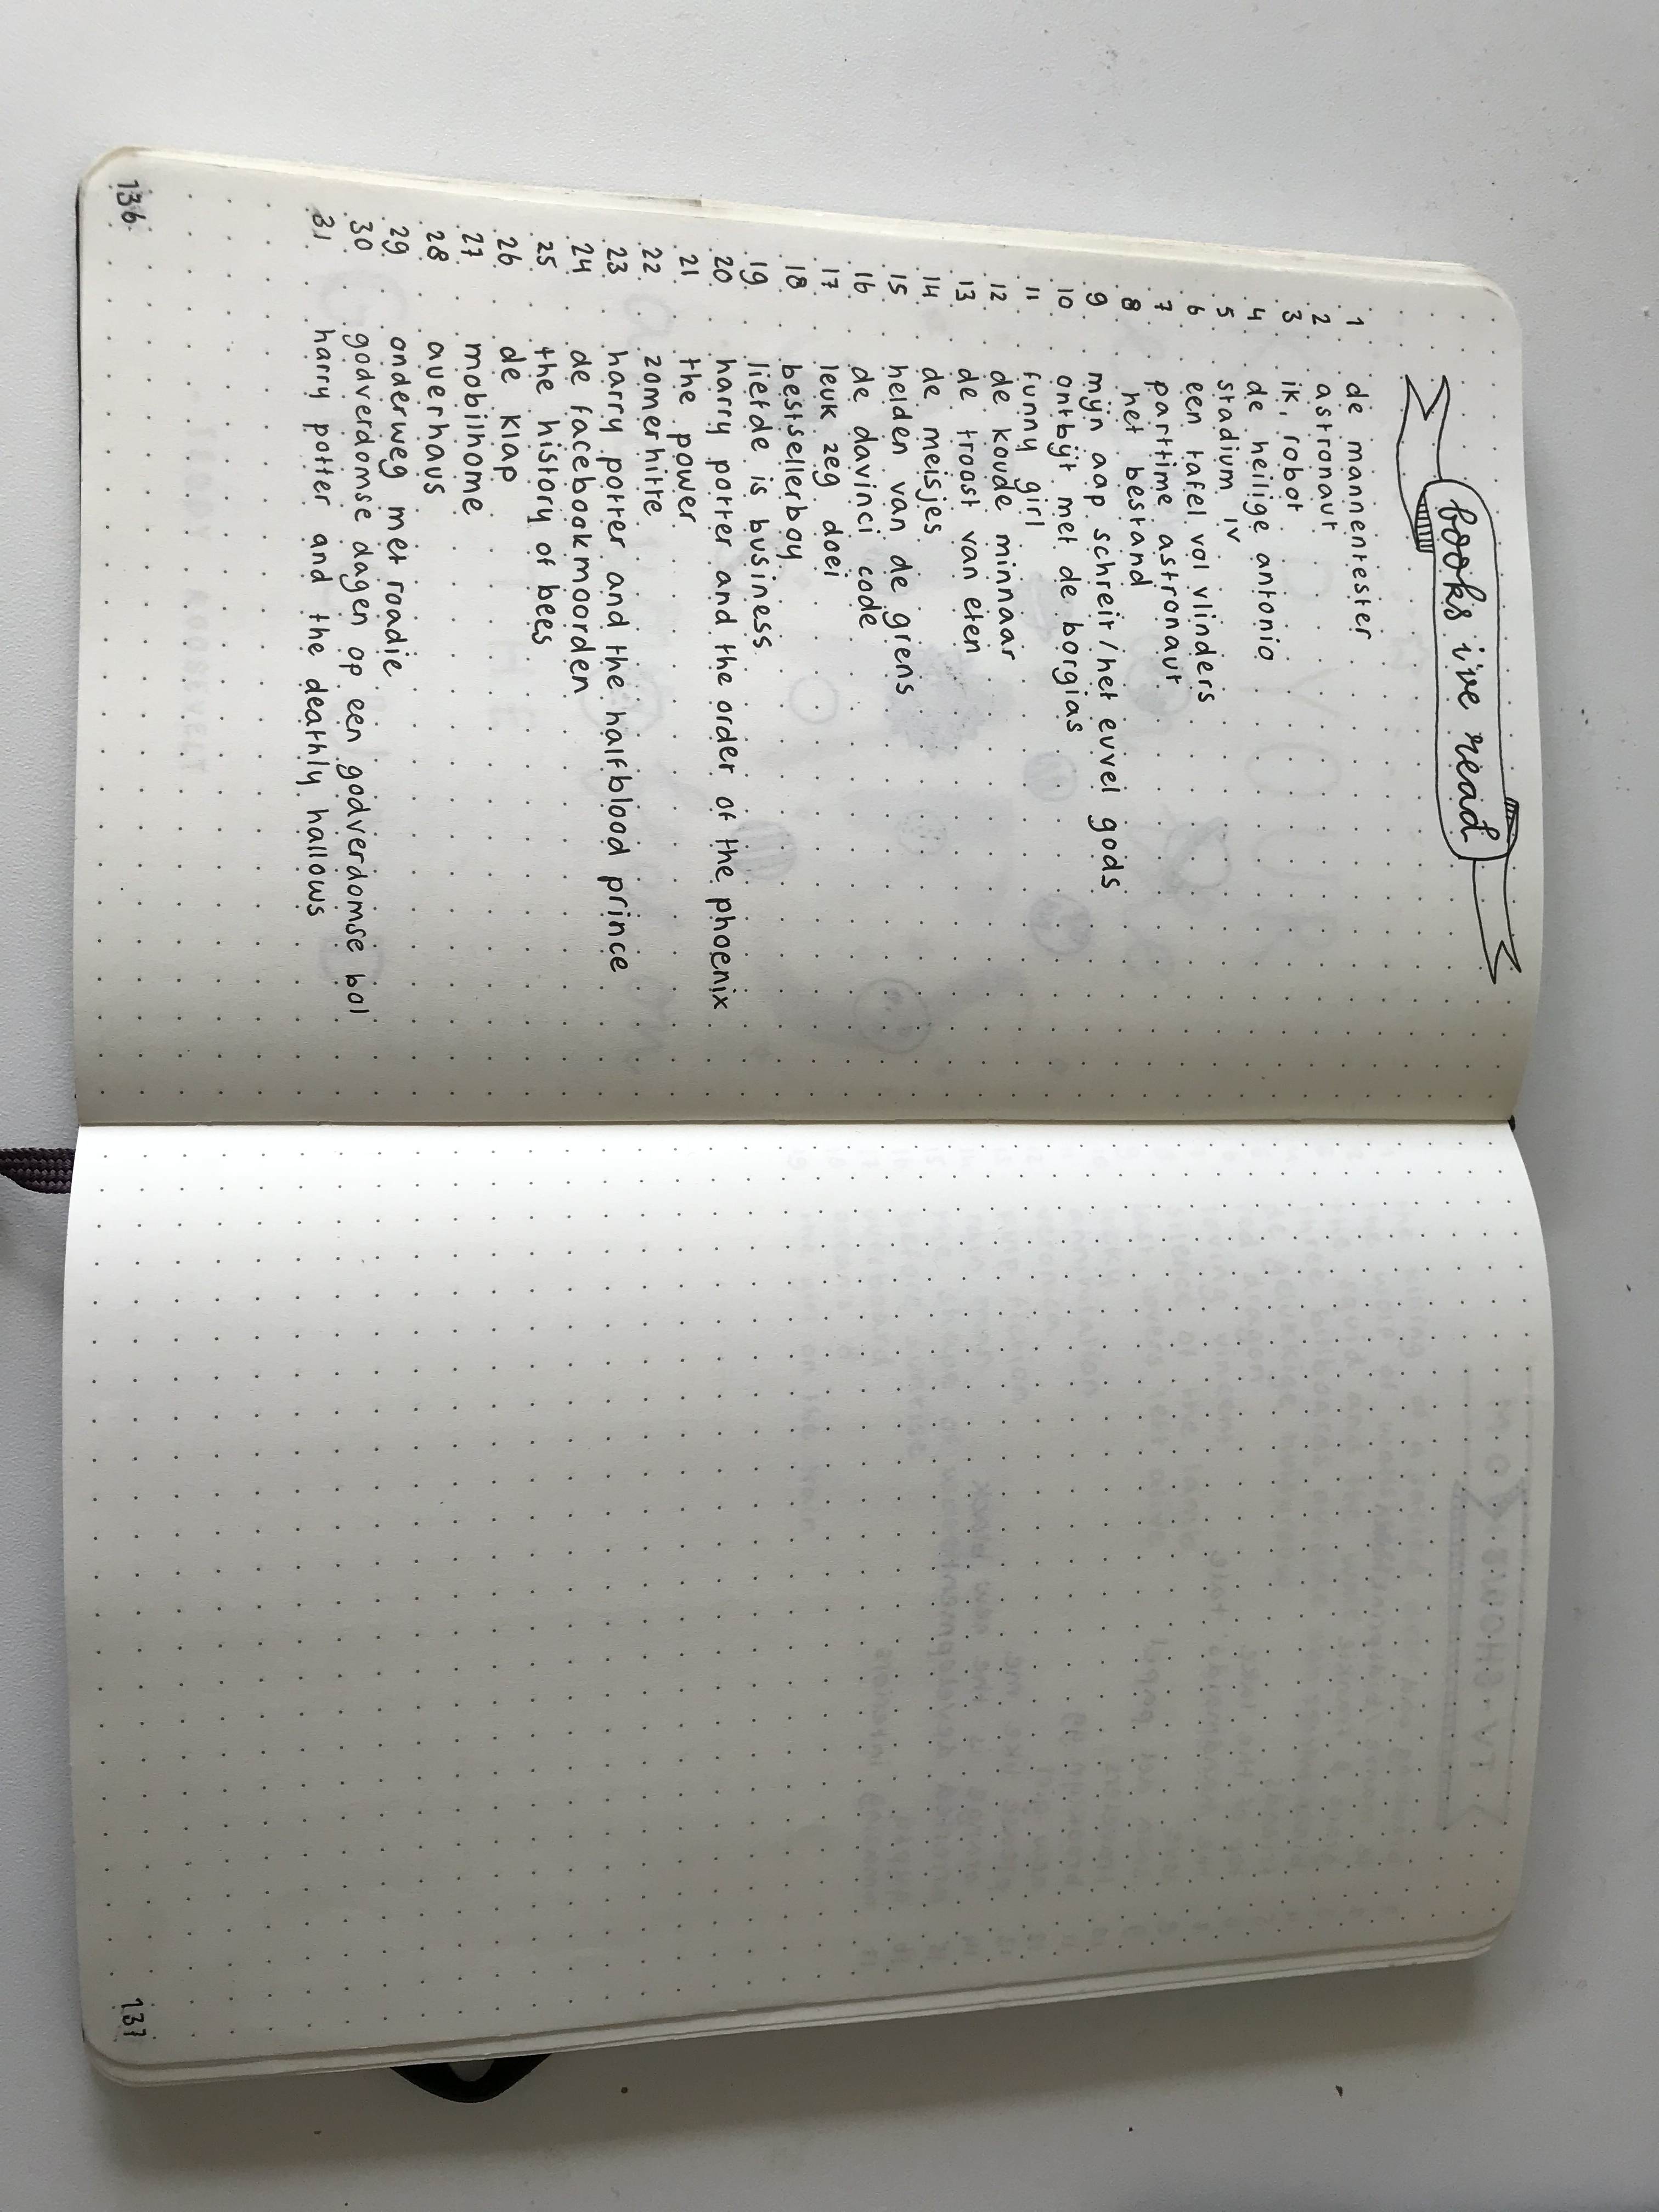 books i've read
1 de mannentester
2 astronaut
3 ik, robot
4 de heilige antonio
5 stadium iv
6 een tafel vol vlinders
7 parttime astronaut
8 het bestand
9 mijn aap schreit/het euvel gods
10 ontbijt met de borgias
11 funny girl
12 de koude minnaar
13 de troost van eten
14 de meisjes
15 helden van de grens
16 de davinci code
17 leuk zeg doei
18 bestsellerboy
19 liefde is business
20 harry potter and the order of the phoenix
21 the power
22 zomerhitte
23 harry potter and the halfblood prince
24 de facebookmoorden
25 the history of bees
26 de klap
27 mobilhome
28 auerhaus
29 onderweg met roadie
30 godverdomse dagen op een godverdomse bol
31 harry potter and the deathly hallows
136
137